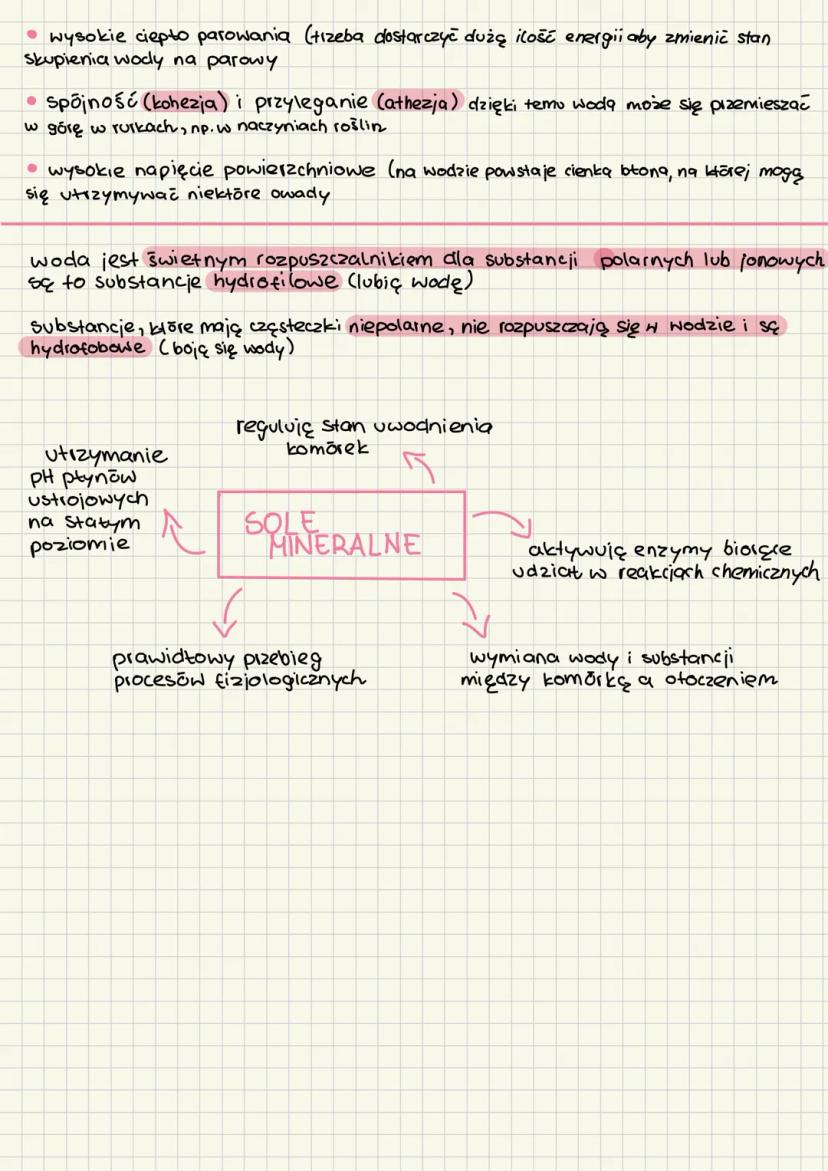 • wysokie ciepło parowania (trzeba dostarczyć dużą ilość energii aby zmienić stan
skupienia wody na parowy
• spójność (kohezja) i przyleganie (athezja) dzięki temu woda może się przemieszać
w górę w rurkach, np. w naczyniach roślin
• wysokie napięcie powierzchniowe (na wodzie powstaje cienka błona, na której mogą
się utrzymywać niektóre owady
woda jest świetnym rozpuszczalnikiem dla substancji polarnych lub jonowych
są to substancje hydrofilowe (lubią wodę)
substancje, które mają cząsteczki niepolarne, nie rozpuszczają się w wodzie i są
hydrofobowe (boją się wody)
regulują stan uwodnienia
komórek
utrzymanie
pH płynów
ustrojowych
na stałym
poziomie
SOLE
MINERALNE
aktywują enzymy biorące
udział w reakcjach chemicznych
prawidłowy przebieg
procesów fizjologicznych
wymiana wody i substancji
między komórką a otoczeniem